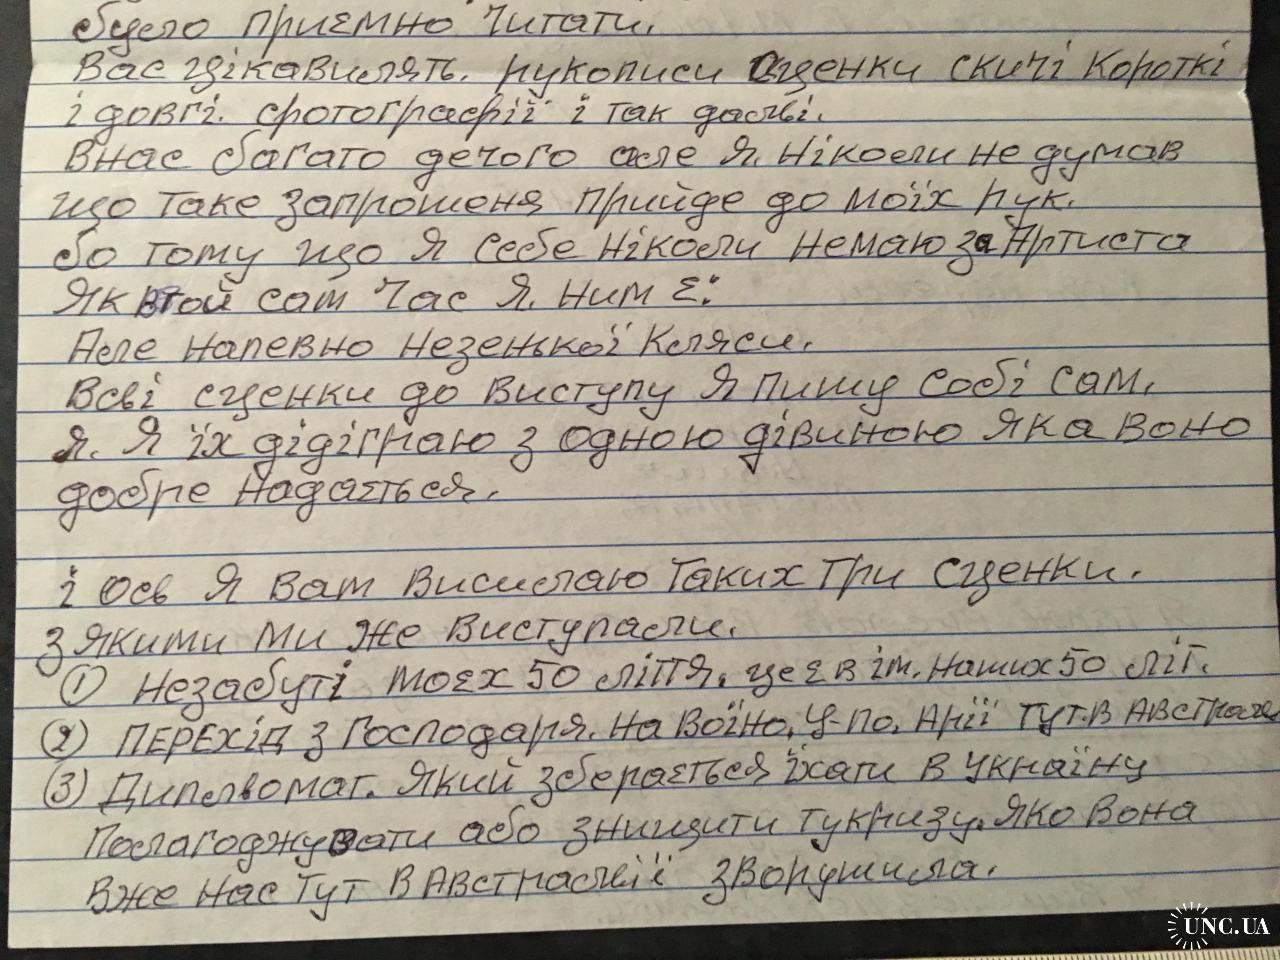 було приємно читати.
Вас цікавилять. рукописи сценки скичі короткі
і довгі. фотографії і так далві.
Внас багато дечого але я. ніколи не думав
що таке запрошеня прийде до моїх рук.
бо тому що я себе ніколи немаю за Артиста
Як втой сам час я. ним є:
Але напевно незенької кляси.
Всві сценки до виступу я пишу собі сам.
я. я їх дідіграю з одною дівиною яка воно
добре надається.
і ось я вам висилаю таких три сценки.
з якими ми же виступали.
① Незабуті моєх 50 ліття. це є в ім. наших 50 літ.
② ПЕРЕХІД з Господаря. на Воїно, У-по. Арії тут. в
③ Дипльомат. Який зберається їхати в Україну
Полагоджувати або знищити тукризу. яко вона
вже нас тут в Австралвії зворушила.
UNC.UA